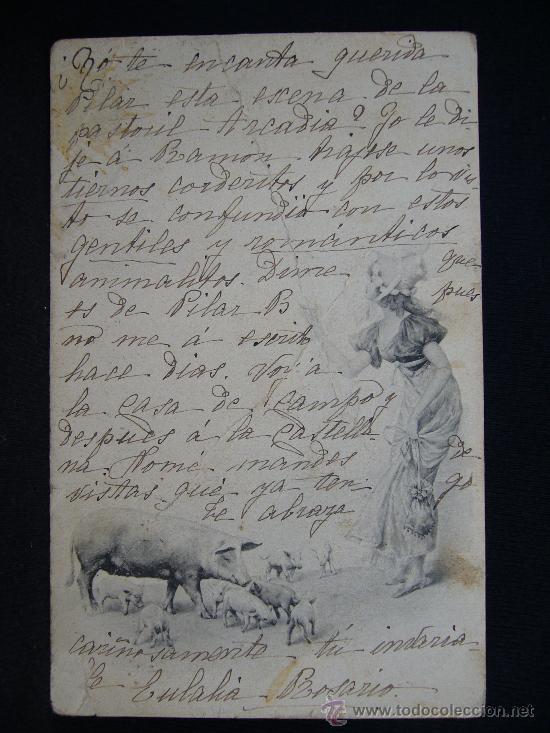 ¿No te encanta querida
Pilar esta escena de la
pastoril Arcadia? Yo le di-
je á Ramon trajese unos
tiernos corderitos y por lo vis-
to se confundio con estos
gentiles y románticos
animalitos. Dime que
es de Pilar B pues
no me á escrito
hace dias. Voy á
la Casa de Campo y
despues á la Castella-
na. No me mandes de
vistas que ya ten- go
te abraza
cariñosamente tú
Eulalia Rosario.
todocoleccion
www.todocoleccion.net